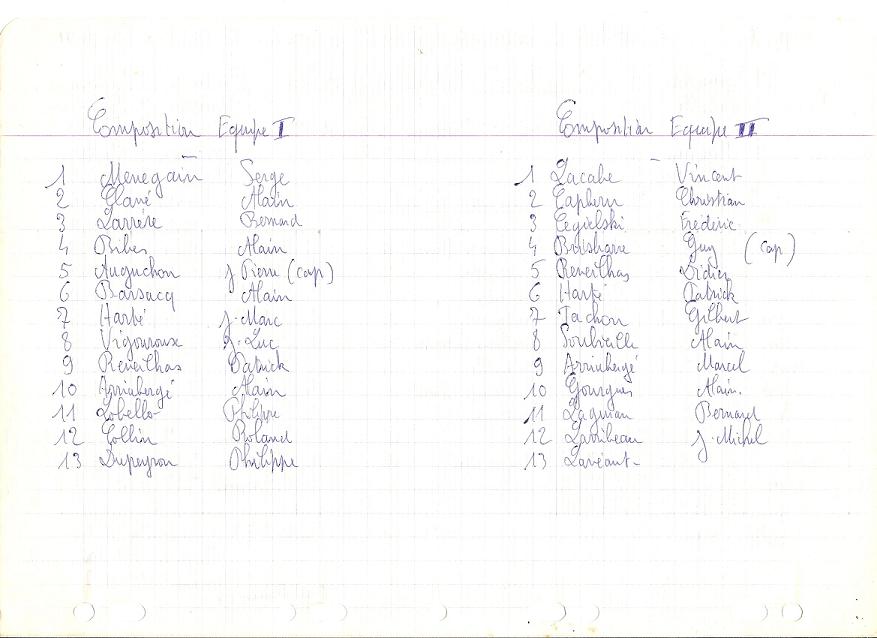 Composition Equipe I
1 Menegain Serge
2 Clavé Alain
3 Larrère Bernard
4 Bibes Alain
5 Auguchon J Pierre (cap)
6 Barsacq Alain
7 Harbé J. Marc
8 Vigouroux J. Luc
9 Reveilhas Patrick
10 Arrinbergé Alain
11 Lobello Philippe
12 Collin Roland
13 Dupeyron Philippe
Composition Equipe II
1 Lacabe Vincent
2 Capbern Christian
3 Cegielski Frédéric
4 Brisbarre Guy (cap)
5 Reveilhas Didier
6 Harbé Patrick
7 Tachon Gilbert
8 Soubielle Alain
9 Arrinbergé Marcel
10 Gourgues Alain.
11 Lagnian Bernard
12 Larribeau J. Michel
13